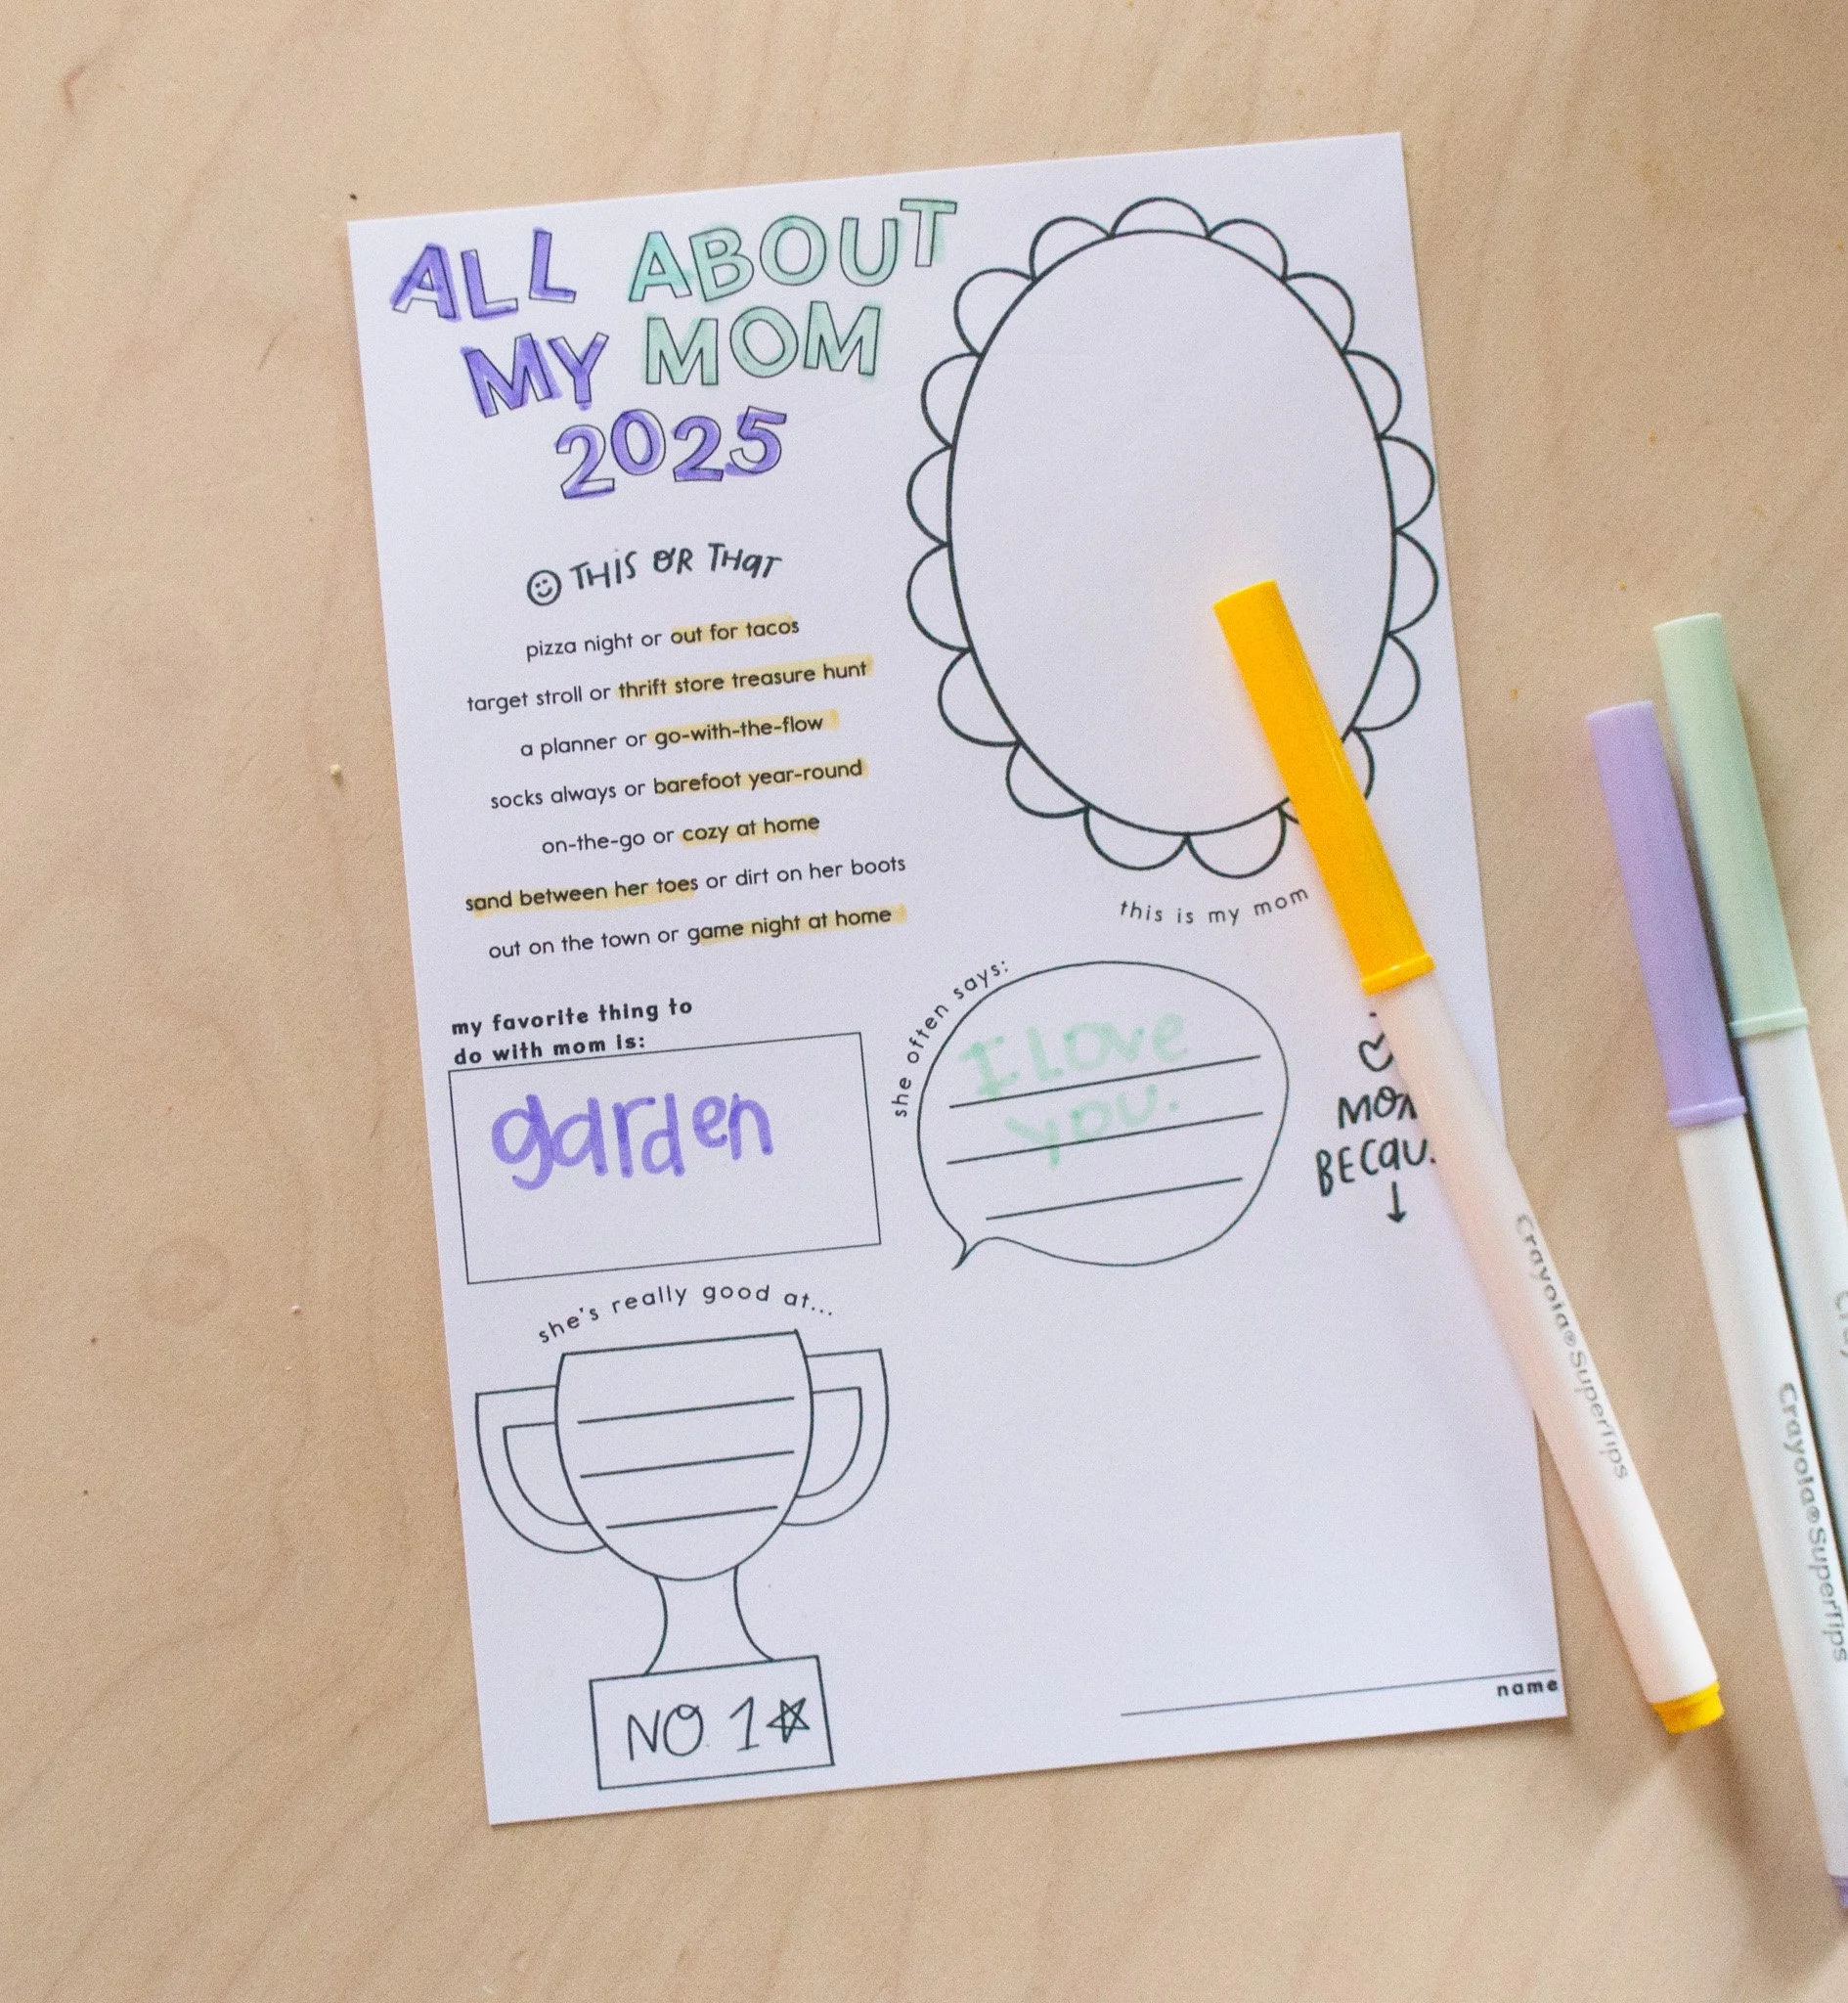 ALL ABOUT
MY MOM
2025
THIS OR THAT
pizza night or out for tacos
target stroll or thrift store treasure hunt
a planner or go-with-the-flow
socks always or barefoot year-round
on-the-go or cozy at home
sand between her toes or dirt on her boots
out on the town or game night at home
this is my mom
my favorite thing to
do with mom is:
garden
she often says:
I LOVE
YOU.
she's really good at...
NO. 1
name
Crayola®SuperTips
Crayola®SuperTips